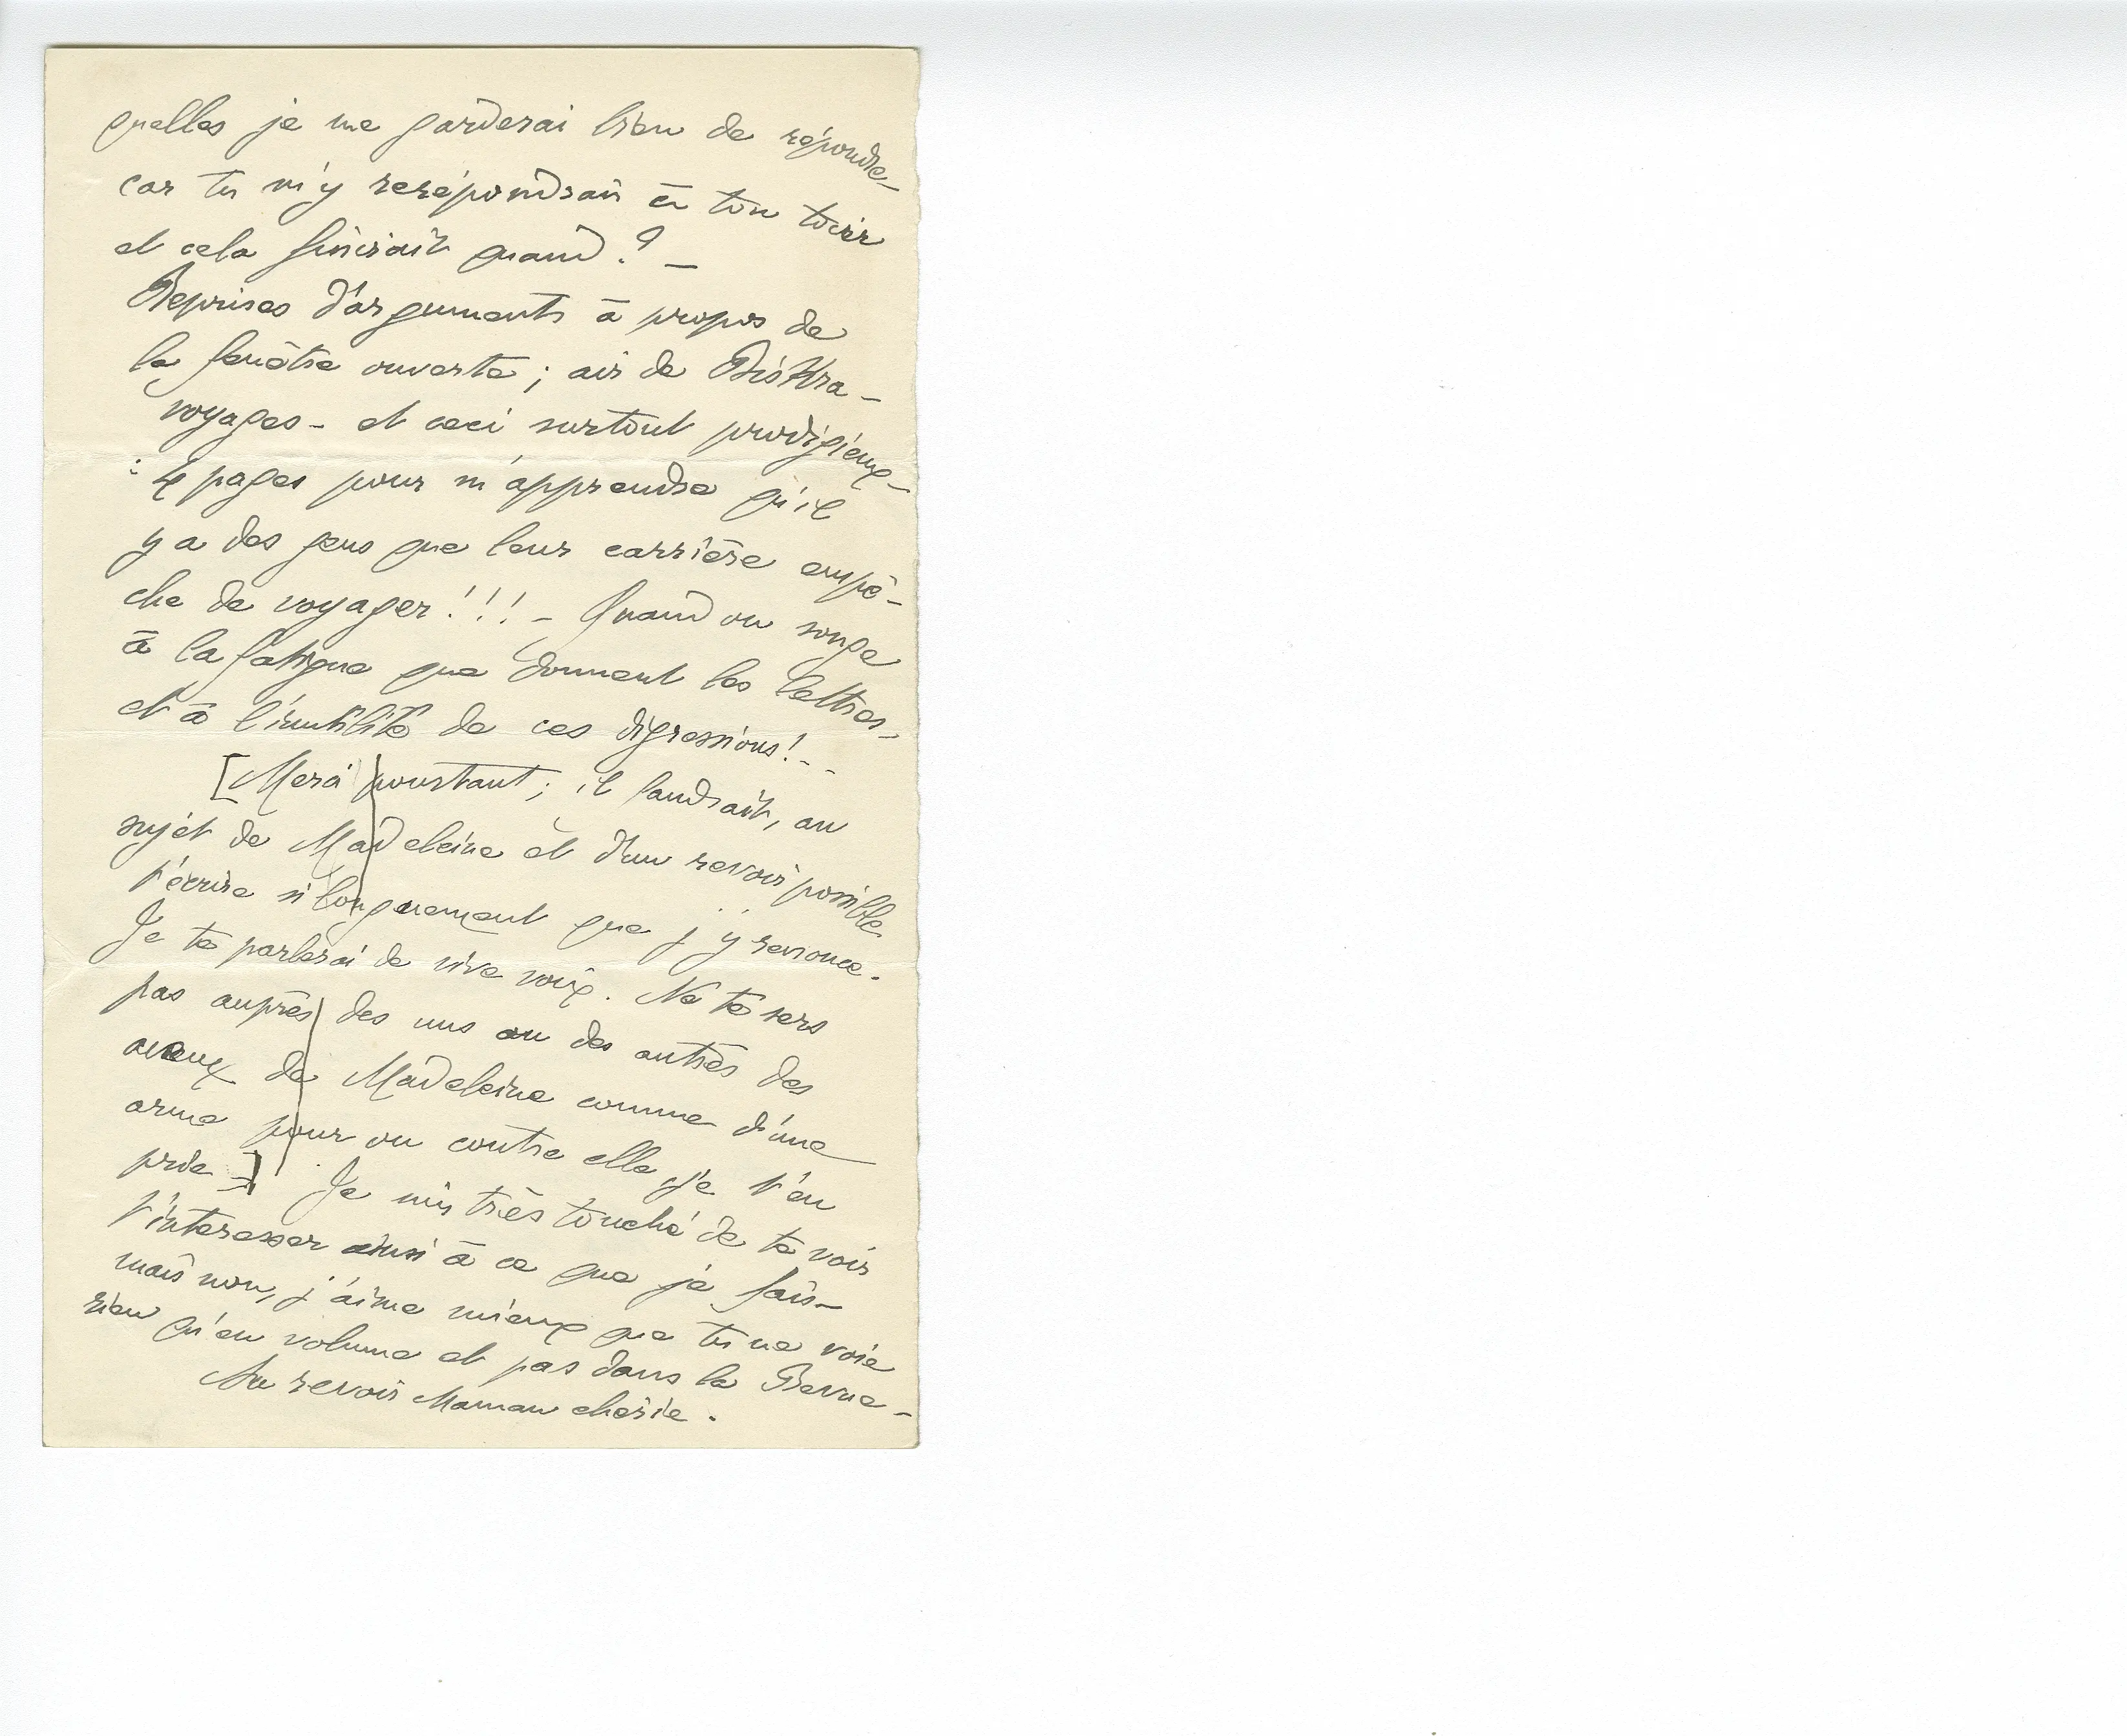 quelles je me garderai bien de répondre –
car tu m'y rerépondrais à ton tour
et cela finirait quand ? –
Reprises d'arguments à propos de
la fenêtre ouverte ; air de Biskra –
voyages – et ceci surtout prodigieux –
: 4 pages pour m'apprendre qu'il
y a des gens que leur carrière empê-
che de voyager !!! – Quand on songe
à la fatigue que donnent les lettres –
et à l'inutilité de ces digressions ! – –
[Merci pourtant ; il faudrait, au
sujet de Madeleine et d'un revoir possible
t'écrire si longuement que j'y renonce.
Je te parlerai de vive voix. Ne te sers
pas auprès des uns ou des autres des
aveux de Madeleine comme d'une
arme pour ou contre elle je t'en
prie –] Je suis très touché de te voir
t'interesser ainsi à ce que je fais –
mais non, j'aime mieux que tu ne voie
rien qu'en volume et pas dans la Revue –
Au revoir Maman chérie .